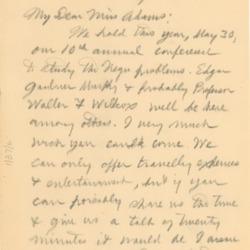 My Dear Miss Adams:
We hold this year, May 30,
our 10th annual conference
to study the Negro problems. Edgar
Gardner Murphy & probably Professor
Walter F Willcox will be here
among others. I very much
wish you could come. We
can only offer travelling expenses
& entertainment, but if you
can possibly spare us the time
& give us a talk of twenty
minutes it would be I assure